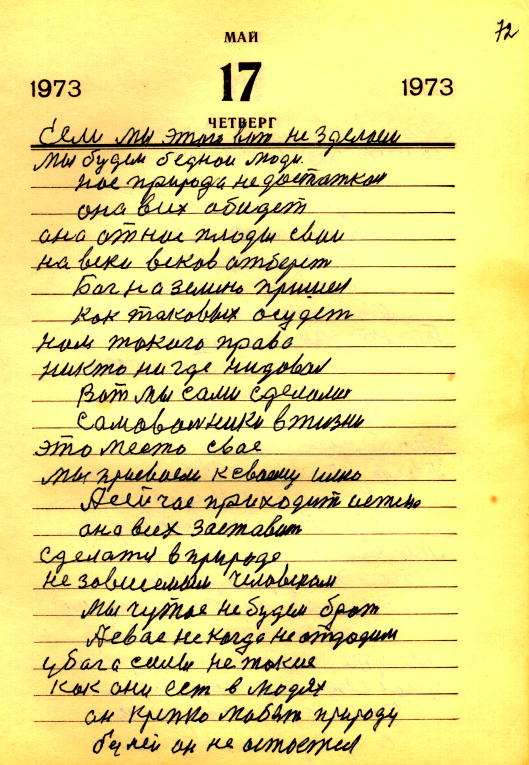 72
МАЙ
1973 17 1973
ЧЕТВЕРГ
Если мы этого вот не зделаем
мы будем бедной люди.
нас природа недостатком
она всих обидет
она от нас плоды свои
на веки веков отберет
Бог на землю пришел
как таковых осудет
нам токого права
никто нигде недовал
Вот мы сами сделали
самовольники в жизни
это место свое
мы присвоем к своему имю
А сейчас приходит истено
она всех заставит
сделатся в природе
не зовисемым человеком
мы чужое не будем брат
А свое некогда не отдадим
у бага силы не токие
как они ест в людях
он крепко любит природу
без ней он не остоется